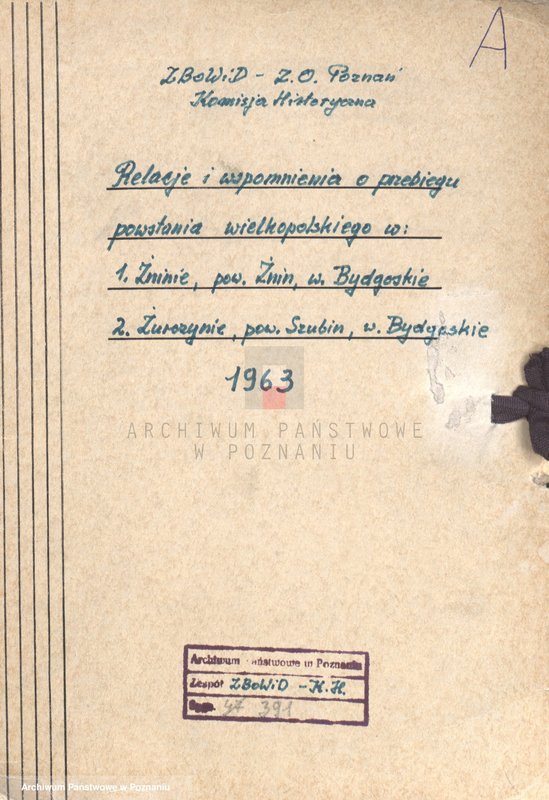 A
ZBoWiD - Z.O. Poznań
Komisja Historyczna
Relacje i wspomnienia o przebiegu
powstania wielkopolskiego w:
1. Żninie, pow. Żnin, w. Bydgoskie
2. Żurczynie, pow. Szubin, w. Bydgoskie
1963
ARCHIWUM PAŃSTWOWE
W POZNANIU
Archiwum Państwowe w Poznaniu
Zespół ZBoWiD - K.H.
Sygn. 391
Archiwum Państwowe w Poznaniu